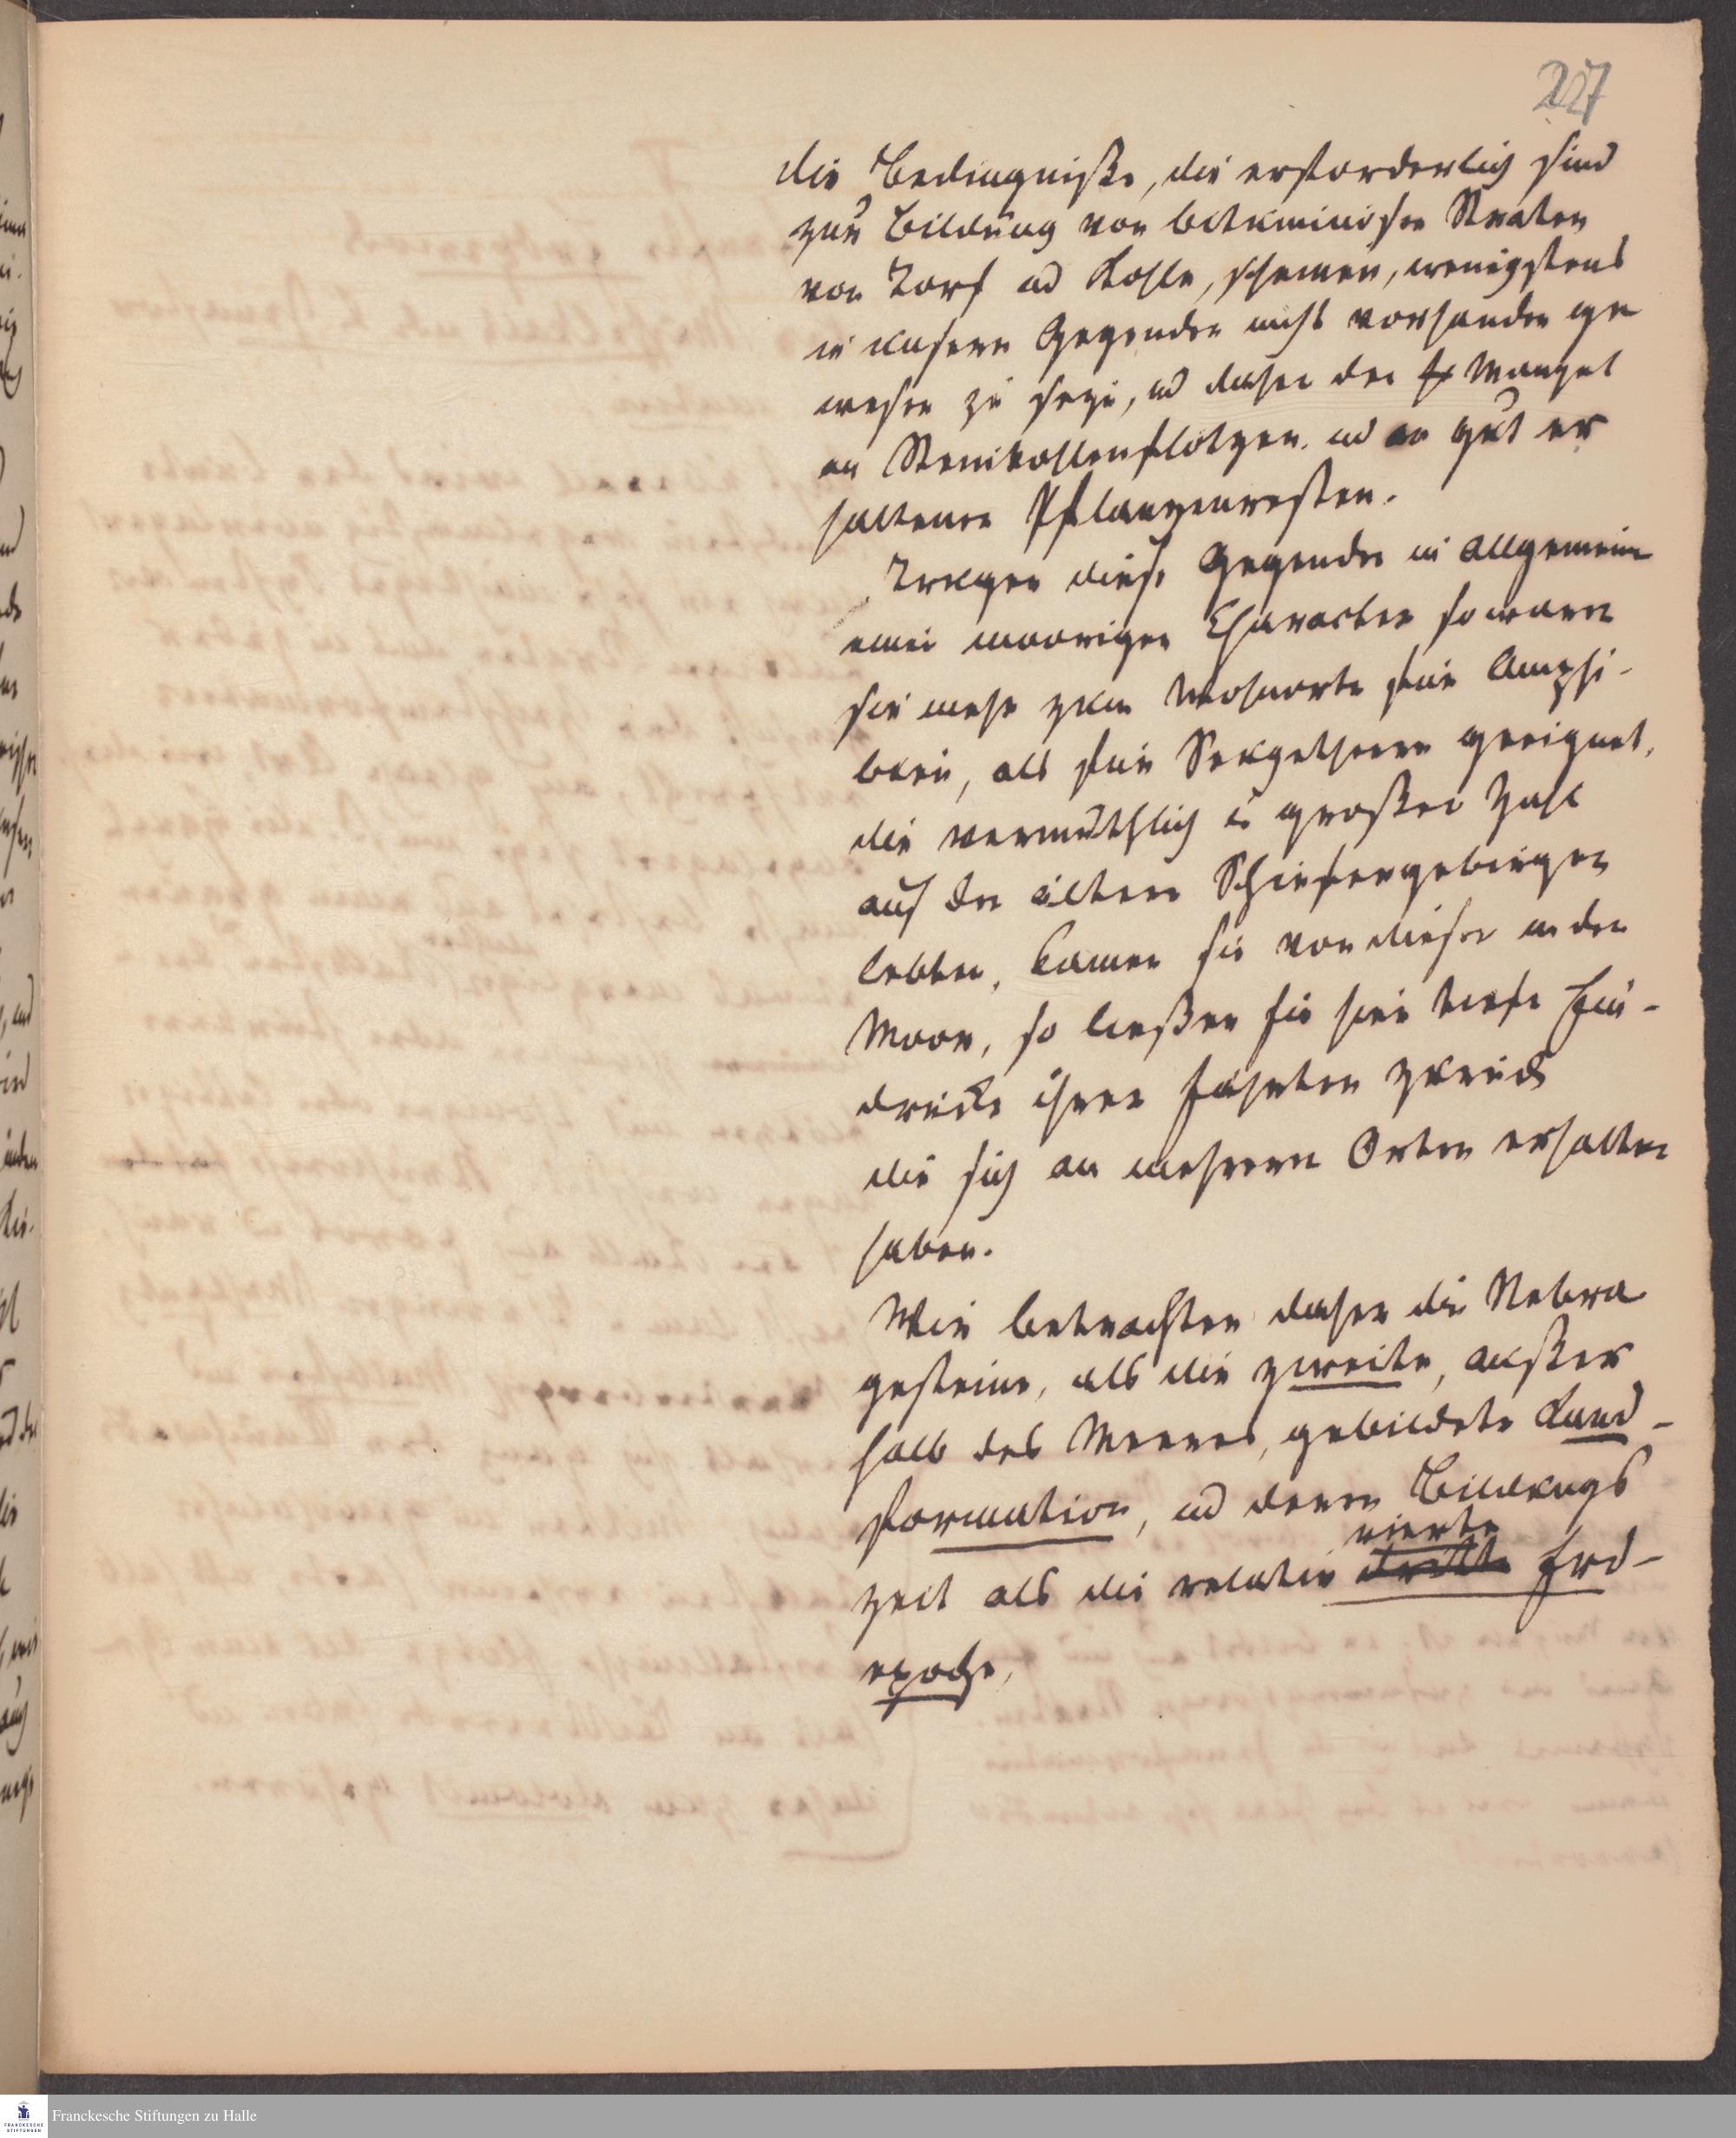 227
die Bedingniße, die erforderlich sind
zur Bildung von bituminisen Straten
von Torf ud Kohle, scheinen, wenigstens
in unsern Gegenden nicht vorhanden ge
wesen zu seyn, ud daher der Mangel
an Steinkohlenflötzen ud an gut er
haltenen Pflanzenresten.
Trugen diese Gegenden in Allgemein
einen moorigen Character so waren
sie mehr zum Wohnorte für Amphi-
bien, als für Seugethiere geeignet,
die vermuthlich in großer Zahl
auf den ältern Schiefergebirgen
lebten. Kamen sie von diesen in den
Moor, so ließen sie hier tiefe Ein-
drücke ihrer Fährten zurück
die sich an mehrern Orten erhalten
haben.
Wir betrachten daher die Nebra
gesteine, als die zweite, außer
halb des Meeres, gebildete Land-
formation, ud deren Bildungs
vierte
zeit als die relativ dritte Erd-
epoche,
Franckesche Stiftungen zu Halle
FRANCKESCHE
STIFTUNGEN